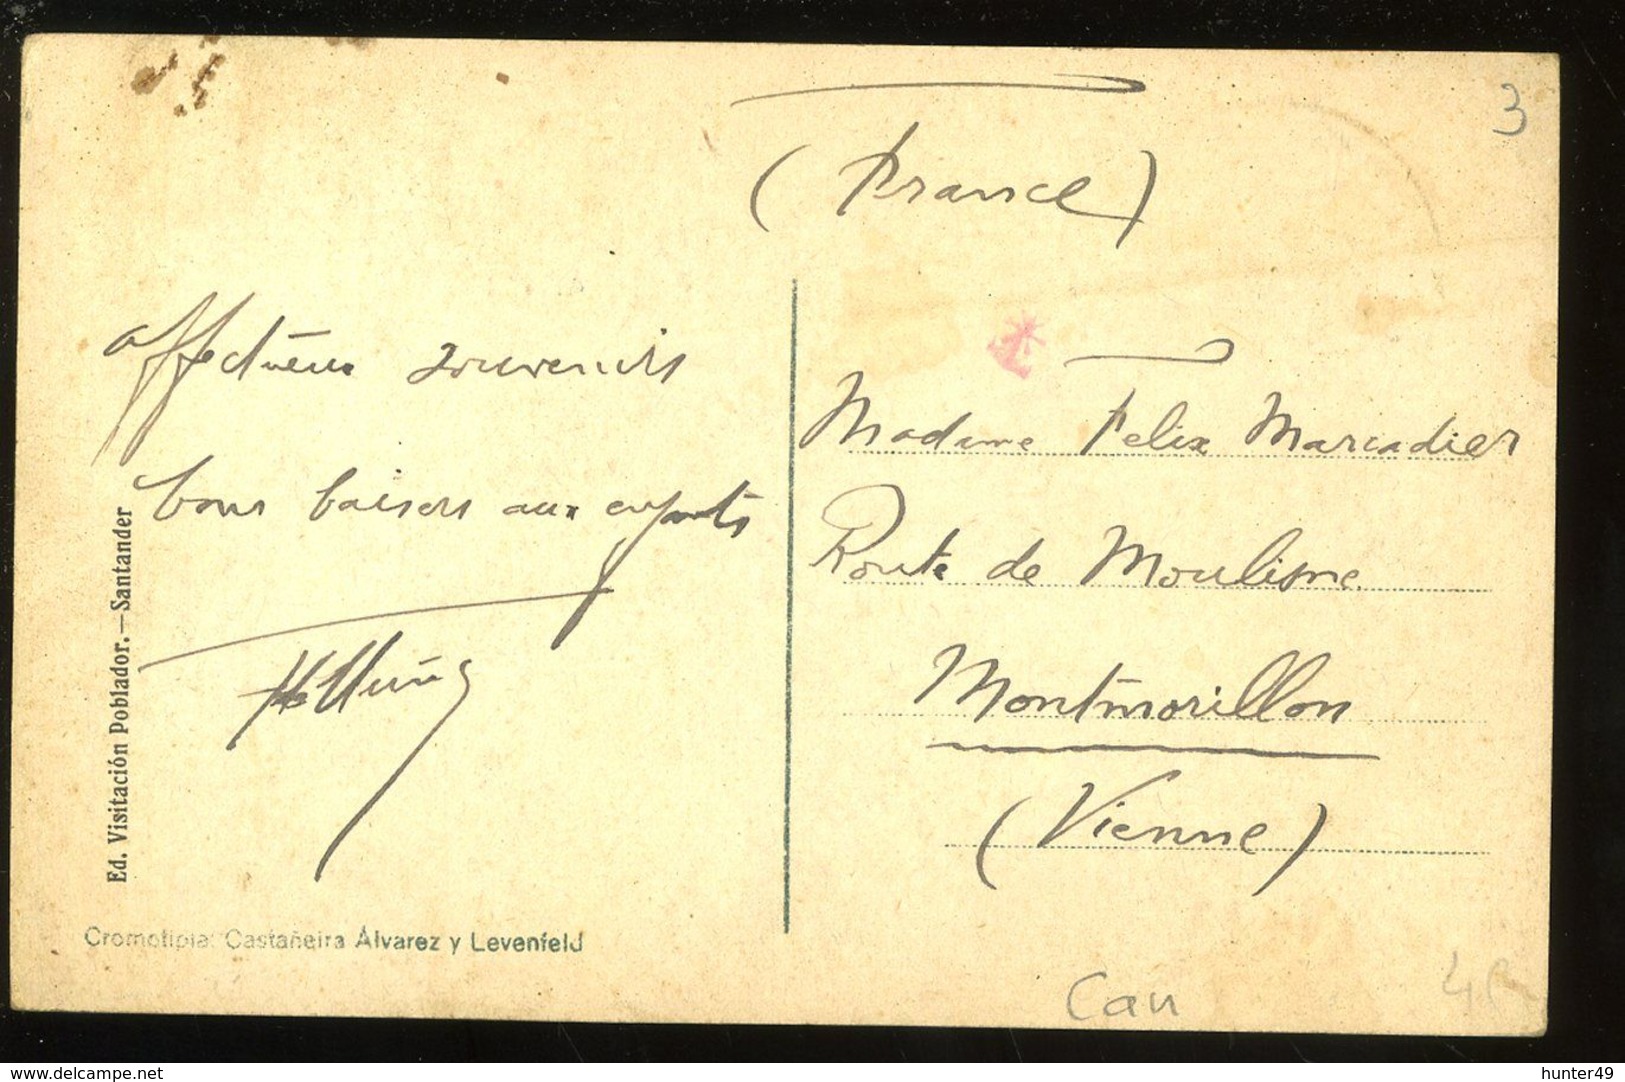 3
(France)
affectueux souvenirs
bons baisers aux enfants
Madame Felix Marcadier
Route de Moulisme
Montmorillon
(Vienne)
Ed. Visitación Poblador.—Santander
Cromotipia: Castañeira Álvarez y Levenfeld
Can
www.delcampe.net
hunter49